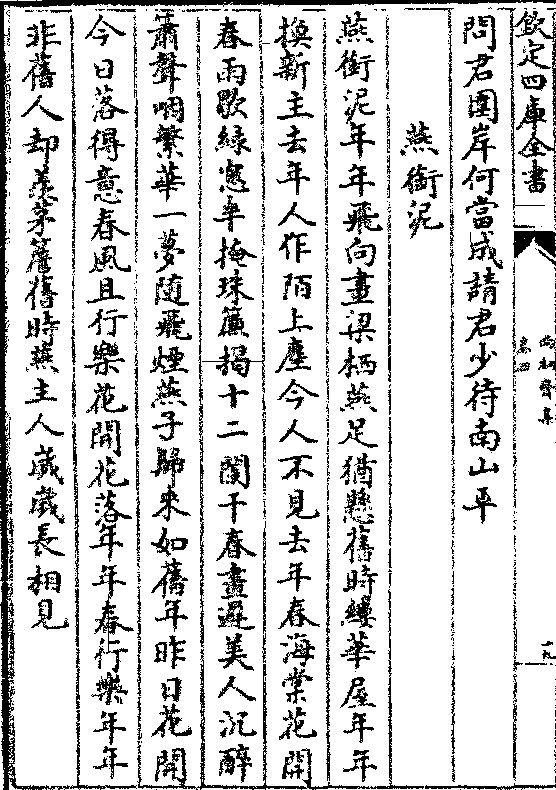 欽定四庫全書
卷四
十九
問君圍岸何當成請君少待南山平
燕銜泥
燕銜泥年年飛向畫梁栖燕足猶懸舊時縷華屋年年
換新主去年人作陌上塵今人不見去年春海棠花開
春雨歇緑窓半掩珠簾揭十二闌干春晝遲美人沉醉
簫聲咽繁華一夢随飛煙燕子歸來如舊年昨日花開
今日落得意春風且行樂花開花落年年春行樂年年
非舊人却羨茅簷舊時燕主人歲歲長相見